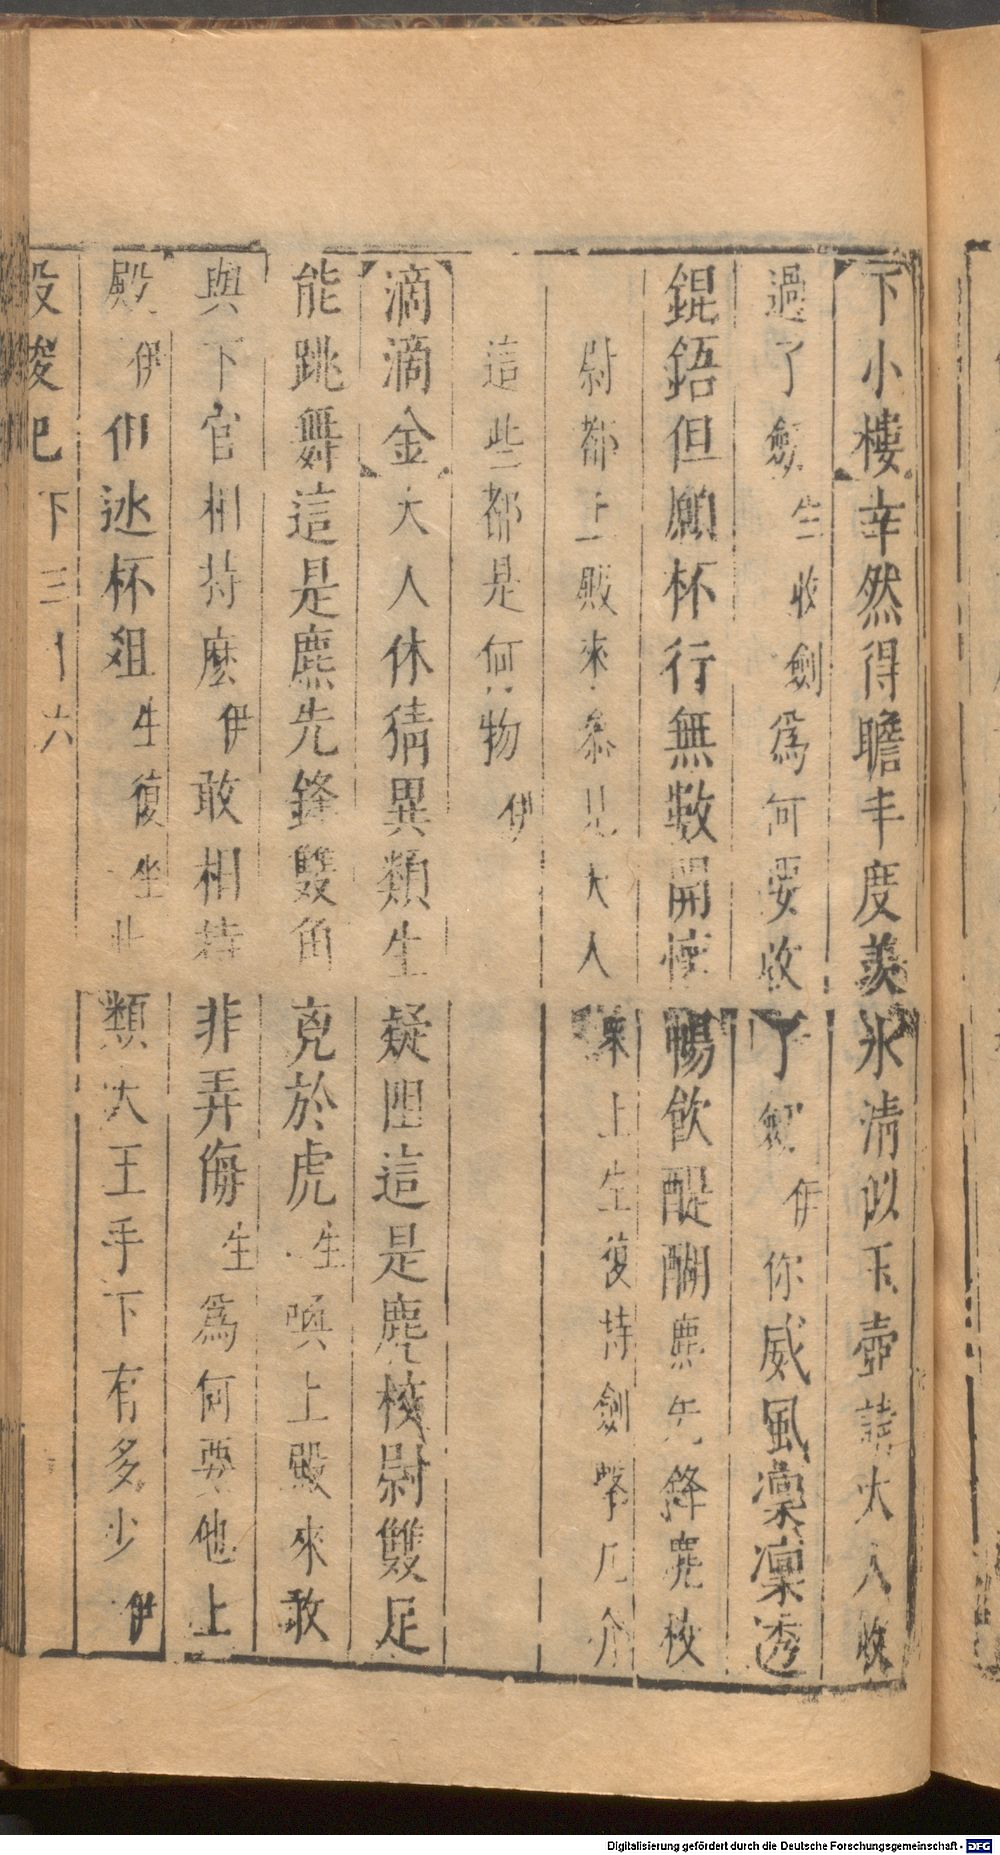 下小樓幸然得瞻丰度羨氷清似玉壺請大人收
過了劍生收劍爲何要收了劍伊你威風凜凜透
錕鋙但願杯行無数開懷暢飲醍醐麃先鋒麃校
尉都上殿來參見大人衆上生復持劍擊几介
這些都是何物伊
滴滴金大人休猜異類生疑团這是麃校尉雙足
能跳舞這是麃先鋒雙角克於虎生喚上殿來敢
與下官相持麽伊敢相持非弄侮生爲何要他上
殿伊佀迯杯爼生復坐此類大王手下有多少伊
下三十六
Digitalisierung gefördert durch die Deutsche Forschungsgemeinschaft - DFG